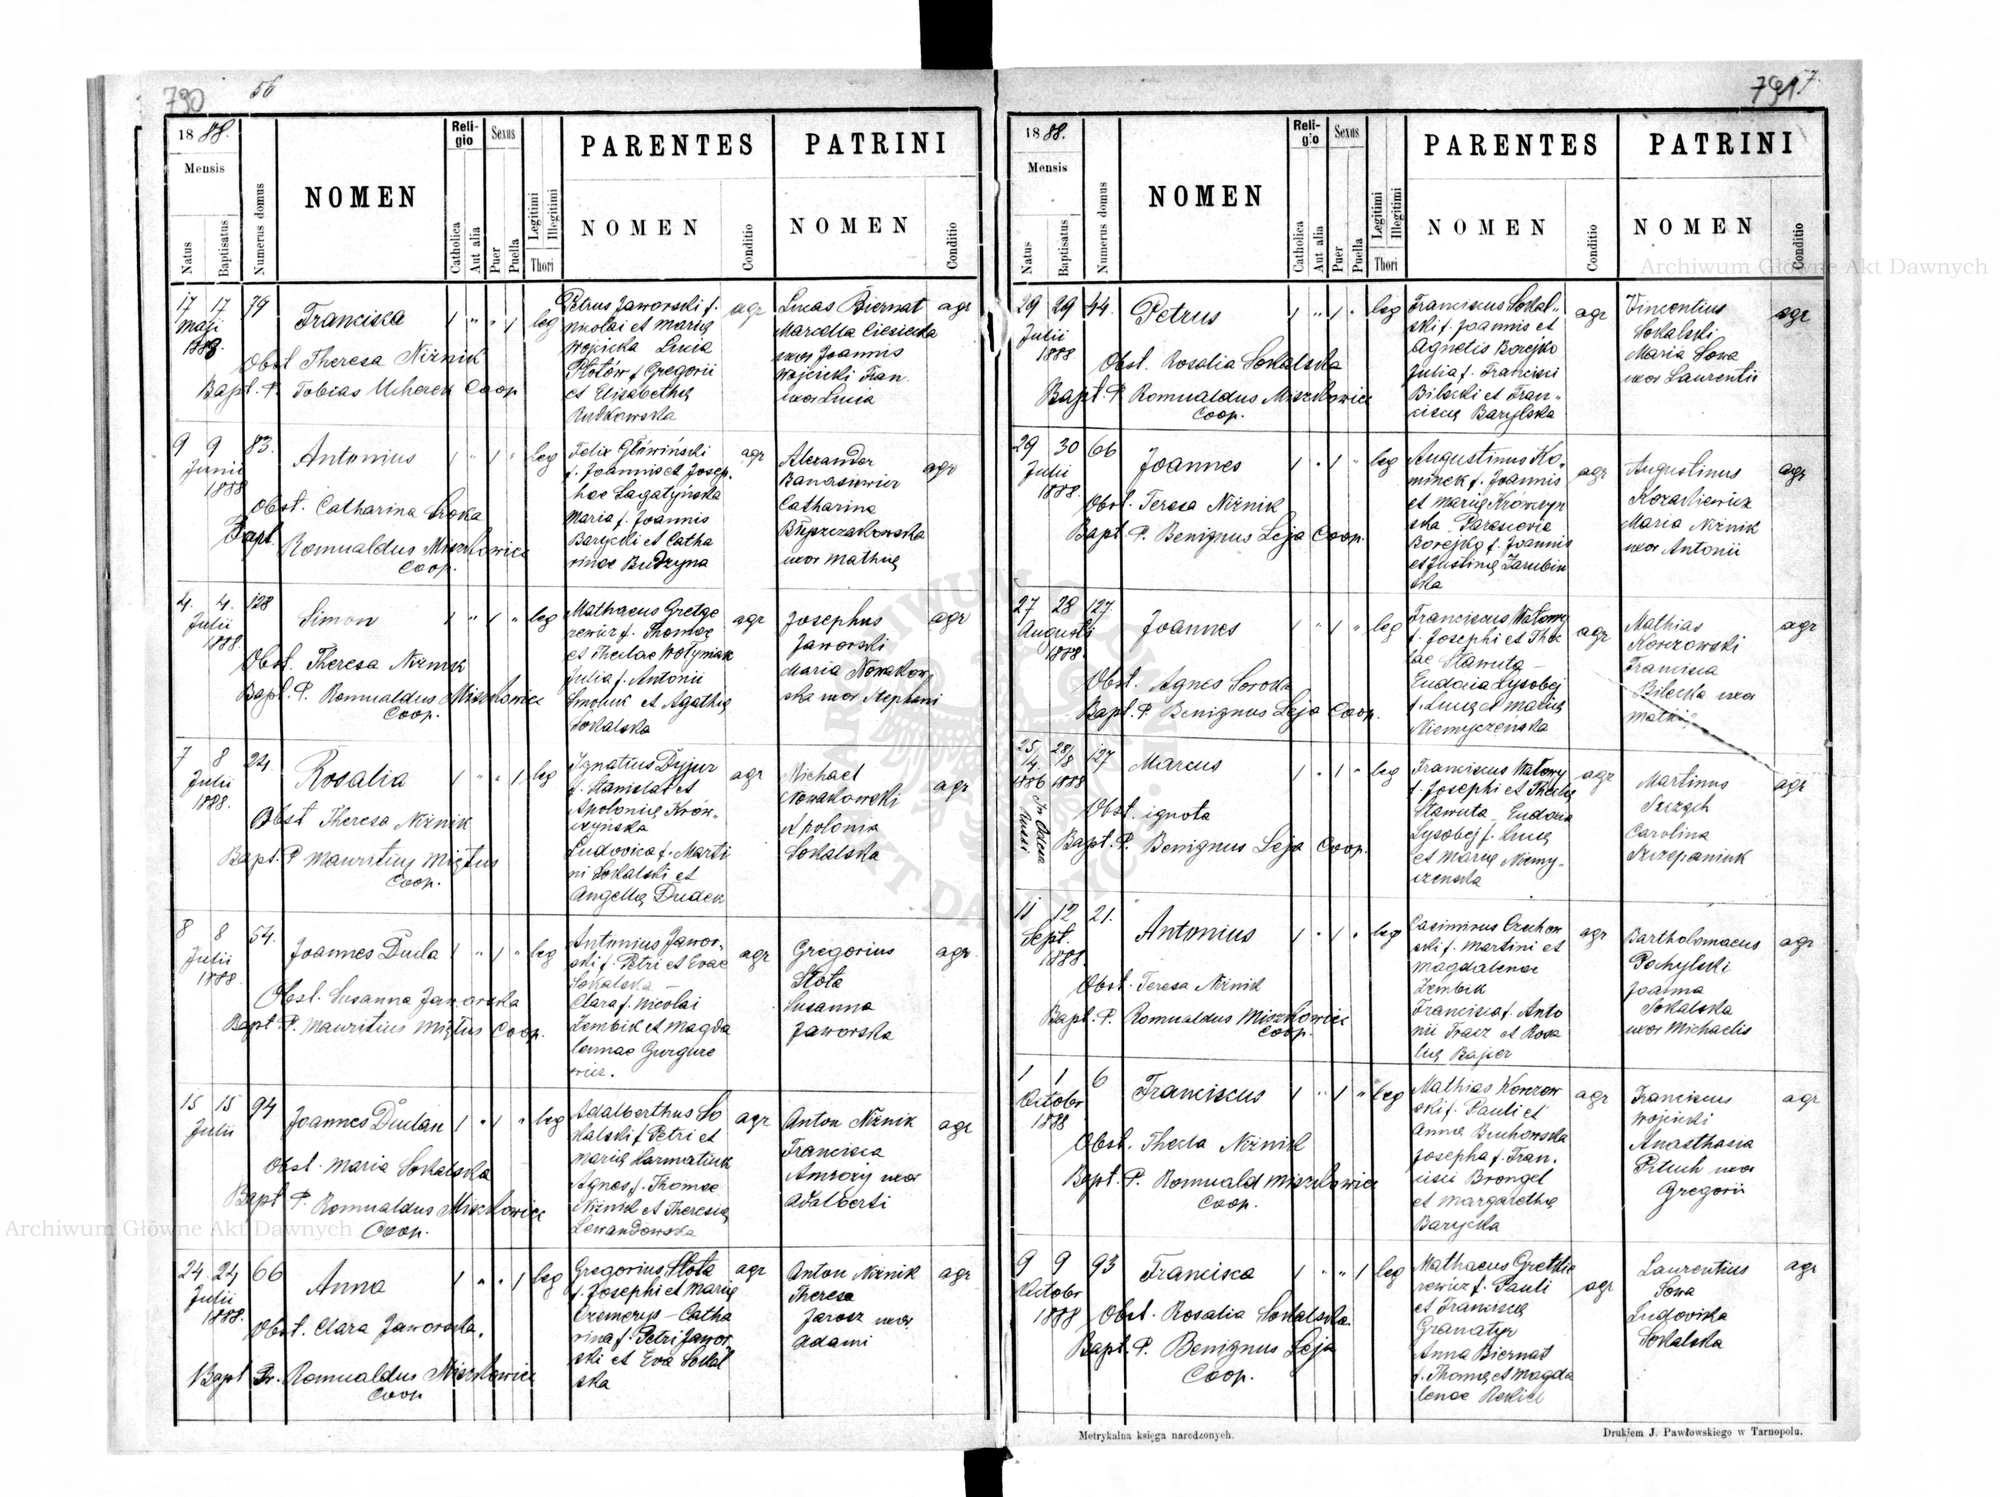 790
56
18 88.
Mensis
Natus
Baptisatus
Numerus domus
NOMEN
Reli-
gio
Catholica
Aut alia
Sexus
Puer
Puella
Legitimi
Illegitimi
Thori
PARENTES
NOMEN
Conditio
PATRINI
NOMEN
Conditio
17 17 79
Maji
1888.
Francisca
1 " " 1 leg
Obst Theresa Niżnik
Bapt. P. Tobias Uchorek Coop
Petrus Jaworski f.
Nicolai et Marię
Wojcicka Lucia
f Gregorii
et Elisabethę
Rutkowska
agr
Lucas Biernat
Marcella Ciesiecka
uxor Joannis
Wojcicki Fran.
uxor Lucia
agr
9 9 83.
Junii
1888
Antonius
1 " 1 " leg
Obst. Catharina Sroka
Bapt
Romualdus Miszkowicz
Coop.
Felix Główiński
f. Joannis et Josep.
hae Sagatyńska
Maria f. Joannis
Barycki et Catha
rinae Budzyna
agr
Alexander
Banasiewicz
Catharina
uxor Mathię
agr
4. 4. 128
Julii
1888.
Simon
1 " 1 " leg
Obst. Theresa Niżnik
Bapt. P. Romualdus Miszkowicz
Coop.
Mathaeus Gretge
rewicz f. Thomae
et Theclae Wołyniak
Julia f. Antonii
Smoluk et Agathę
Sokalska
agr
Josephus
Jaworski
Maria Nowakow
ska uxor Stephani
agr
7 8 24.
Julii
1888.
Rosalia
1 " " 1 leg
Obst Theresa Niżnik
Bapt. P Mauritius Miętus
Coop.
Ignatius Dyjur
f. Stanislai et
Apolonię Krów-
czyńska
Ludovica f. Marti
ni Sokalski et
Angelię Dudek
agr
Michael
Nowakowski
Apolonia
Sokalska
agr
8 8 54.
Julii
1888.
Joannes Duda
1 " 1 " leg
Obst. Susanna Jaworska
Bapt P. Mauritius Miętus Coop.
Antonius Jawor-
ski f. Petri et Evae
Sokalska –
Clara f. Nicolai
Zembik et Magda
lenae Gurgure
wicz.
agr
Gregorius
Słota
Susanna
Jaworska
agr.
15 15 94
Julii
Joannes Duclan
1 " 1 " leg
Obst. Maria Sokalska
Bapt P. Romualdus Miszkowicz
Coop.
Adalberthus So
kalski f Petri et
Marię Harmatiuk
Agnes f. Thomae
Niżnik et Theresię
Lewandowska
agr
Anton Niżnik
Francisca
Amroży uxor
Adalberti
agr
24 24 66
Julii
1888.
Anna
1 " " 1 leg
Obst. Clara Jaworska.
Bapt Pr. Romualdus Miszkowicz
Coop
Gregorius Słota
f. Josephi et Marię
Czemerys – Catha
rina f. Petri Jawor
ski et Eva Sokal
ska
agr
Anton Niżnik
Theresa
Jarosz uxor
Adami
agr
791
7.
18 88.
Mensis
Natus
Baptisatus
Numerus domus
NOMEN
Reli-
gio
Catholica
Aut alia
Sexus
Puer
Puella
Legitimi
Illegitimi
Thori
PARENTES
NOMEN
Conditio
PATRINI
NOMEN
Conditio
29 29 44.
Julii
1888
Petrus
1 " 1 " leg
Obst. Rosalia Sokalska
Bapt. P Romualdus Miszkowicz
Coop.
Franciscus Sokal-
ski f. Joannis et
Agnetis Borejko
Julia f. Francisci
Bilecki et Fran-
ciscę Barylska
agr
Vincentius
Sokalski
Maria Sowa
uxor Laurentii
agr
29 30 66
Julii
1888.
Joannes
1 " 1 " leg
Obst. Teresa Niżnik
Bapt P. Benignus Leja Coop.
Augustinus Ko-
minek f. Joannis
et Marię Krówczyn
ska Parascevia
Borejko f. Joannis
et Justinę Zarubin
ska
agr
Augustinus
Kozarkiewicz
Maria Niżnik
uxor Antonii
agr
27 28 127.
Augusti
1888.
Joannes
1 " 1 " leg
Obst. Agnes Soroka
Bapt. P. Benignus Leja Coop.
Franciscus Watowy
f. Josephi et Thec
lae Sławuta –
Eudoxia Łysobej
f. Lucę et Marię
Niemyczeńska
agr
Mathias
Korczowski
Francisca
Bilecka uxor
Mathię
agr
25/4. 28/8 127
1886 1888
In Odessa
Russi
Marcus
1 " 1 " leg
Obst. ignota
Bapt. P. Benignus Leja Coop.
Franciscus Watowy
f. Josephi et Theclę
Sławuta Eudoxia
Łysobej f. Lucę
et Marię Niemy-
czenska
agr
Martinus
Carolina
Szczepaniuk
agr
11 12 21.
Sept.
1888.
Antonius
1 " 1 " leg
Obst. Teresa Niżnik
Bapt. P. Romualdus Miszkowicz
Coop.
Casimirus Czechow
ski f. Martini et
Magdalenae
Zembik
Francisca f. Anto
nii Tracz et Rosa
lię Bajer
agr
Bartholomaeus
Pochylski
Joanna
Sokalska
uxor Michaelis
agr
1 1 6
Octobr
1888
Franciscus
1 " 1 " leg
Obst. Thecla Niżnik
Bapt. P. Romuald Miszkowicz
Coop.
Mathias Korczow
ski f. Pauli et
Anna Buchowska
Josepha f. Fran.
cisci Brongel
et Margarethę
Barycka
agr
Franciscus
Wojcicki
Anasthasia
Pituch uxor
Gregorii
agr
9 9 93
Octobr
1888
Francisca
1 " " 1 leg
Obst. Rosalia Sokalska
Bapt. P. Benignus Leja
Coop.
Mathaeus Gretkie
rewicz f. Pauli
et Franciscę
Granatyr
Anna Biernat
f. Thomę et Magda
lenae
agr
Laurentius
Sowa
Ludovika
Sokalska
agr
Metrykalna księga narodzonych.
Drukiem J. Pawłowskiego w Tarnopolu.
Archiwum Główne Akt Dawnych
Archiwum Główne Akt Dawnych